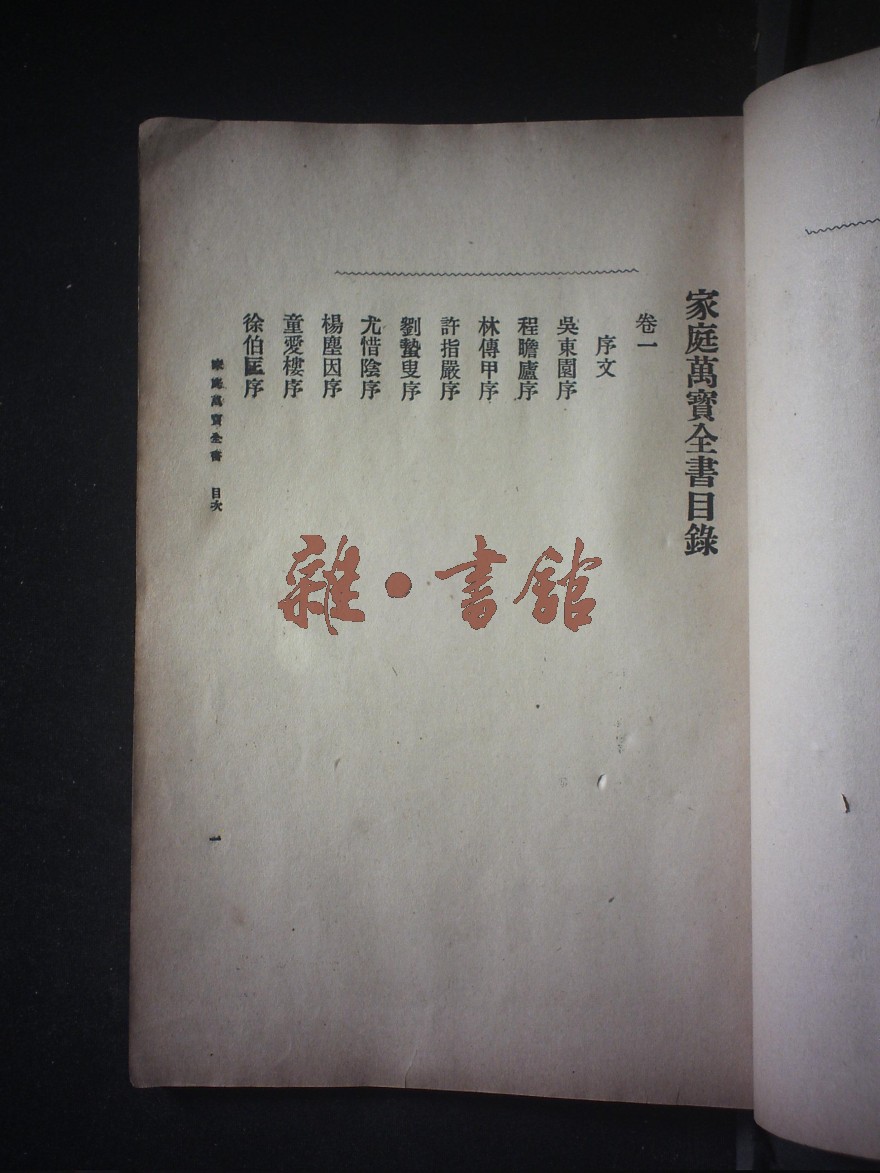 家庭萬寶全書目錄
卷一
序文
吳東園序
程瞻廬序
林傳甲序
許指嚴序
劉蟄叟序
尤惜陰序
楊塵因序
童愛樓序
徐伯匡序
家庭萬寶全書 目次
一
雜·書館